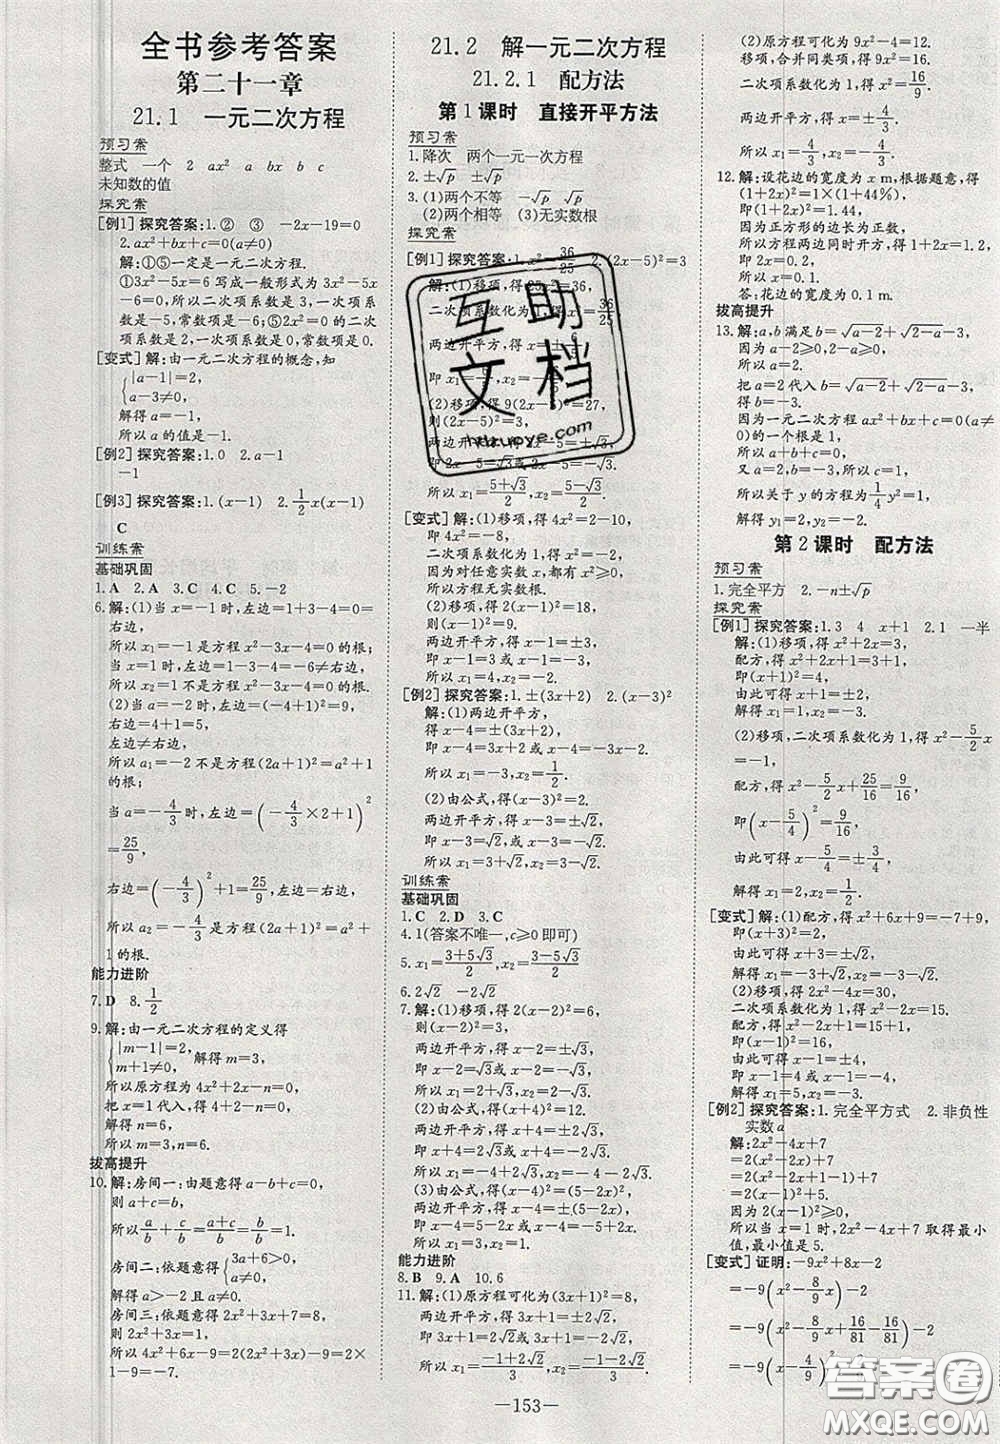 全书参考答案
第二十一章
21.1 一元二次方程
预习案
整式 一个 2 ax² a bx b c
未知数的值
探究案
[例1] 探究答案:1.② ③ -2x-19=0
2.ax²+bx+c=0(a≠0)
解:①⑤一定是一元二次方程.
①3x²-5x=6写成一般形式为3x²-5x
-6=0,所以二次项系数是3,一次项系
数是-5,常数项是-6;⑤2x²=0的二次
项系数是2,一次项系数是0,常数项是0.
[变式] 解:由一元二次方程的概念,知
|a-1|=2,
a-3≠0,
解得a=-1.
所以a的值是-1.
[例2] 探究答案:1.0 2.a-1
-1
[例3] 探究答案:1.(x-1) 2.1/2x(x-1)
C
训练案
基础巩固
1.A 2.A 3.C 4.A 5.-2
6.解:(1)当x=-1时,左边=1+3-4=0=
右边,
所以x=-1是方程x²-3x-4=0的根;
当x=1时,左边=1-3-4=-6≠右边,
所以x=1不是方程x²-3x-4=0的根.
(2)当a=-2时,左边=(-4+1)²=9,
右边=4+1=5,
左边≠右边,
所以a₁=-2不是方程(2a+1)²=a²+1
的根;
当a=-4/3时,左边=(-4/3×2+1)²
=25/9,
右边=(-4/3)²+1=25/9,左边=右边,
所以a₂=-4/3是方程(2a+1)²=a²+
1的根.
能力进阶
7.D 8.1/2
9.解:由一元二次方程的定义得
|m-1|=2,
m+1≠0,
解得m=3,
所以原方程为4x²+2x-n=0,
把x=1代入,得4+2-n=0,
解得n=6,
所以m=3,n=6.
拔高提升
10.解:房间一:由题意得a-b+c=0,
则a+c=b,
所以a/b+c/b=(a+c)/b=b/b=1.
房间二:依题意得
3a+6>0,
a≠0,
解得a>-2且a≠0.
房间三:依题意得2x²+3x+7=8,
则2x²+3x=1,
所以4x²+6x-9=2(2x²+3x)-9=2×
1-9=-7.
21.2 解一元二次方程
21.2.1 配方法
第1课时 直接开平方法
预习案
1.降次 两个一元一次方程
2.±√p ±√p
3.(1)两个不等 -√p √p
(2)两个相等 (3)无实数根
探究案
[例1] 探究答案:1.x²=36/25 2.(2x-5)²=3
解:(1)移项,得25x²=36,
二次项系数化为1,得x²=36/25
两边开平方,得x=±
即x₁= ,x₂=
(2)移项,得9(2x-5)²=27,
则(2x-5)²=3,
两边开平方,得2x-5=±√3,
即2x-5=√3或2x-5=-√3,
所以x₁=(5+√3)/2,x₂=(5-√3)/2.
[变式] 解:(1)移项,得4x²=2-10,
即4x²=-8,
二次项系数化为1,得x²=-2.
因为对任意实数x,都有x²≥0,
所以原方程无实数根.
(2)移项,得2(x-1)²=18,
则(x-1)²=9,
两边开平方,得x-1=±3,
即x-1=3或x-1=-3,
所以x₁=4,x₂=-2.
[例2] 探究答案:1.±(3x+2) 2.(x-3)²
解:(1)两边开平方,
得x-4=±(3x+2),
即x-4=3x+2或x-4=-3x-2,
所以x₁=-3,x₂=1/2.
(2)由公式,得(x-3)²=2,
两边开平方,得x-3=±√2,
即x-3=√2或x-3=-√2,
所以x₁=3+√2,x₂=3-√2.
训练案
基础巩固
1.C 2.D 3.C
4.1(答案不唯一,c≥0即可)
5.x₁=(3+5√3)/3,x₂=(3-5√3)/3
6.2√2 -2√2
7.解:(1)移项,得2(x-2)²=6,
则(x-2)²=3,
两边开平方,得x-2=±√3,
即x-2=√3或x-2=-√3,
所以x₁=2+√3,x₂=2-√3.
(2)由公式,得(x+4)²=(2x-1)²,
两边开平方,得x+4=±(2x-1),
即x+4=2x-1或x+4=-2x+1,
所以x₁=5,x₂=-1.
(3)由公式,得(x-4)²=(5-2x)²,
两边开平方,得x-4=±(5-2x),
即x-4=5-2x或x-4=-5+2x,
所以x₁=3,x₂=1.
能力进阶
8.B 9.A 10.6
11.解:(1)原方程可化为(3x+1)²=8,
两边开平方,得3x+1=±2√2,
即3x+1=2√2或3x+1=-2√2,
所以x₁=(-1+2√2)/3,x₂=(-1-2√2)/3.
(2)原方程可化为9x²-4=12.
移项,合并同类项,得9x²=16.
二次项系数化为1,得x²=16/9.
两边开平方,得x=±4/3,
所以x₁=4/3,x₂=-4/3.
12.解:设花边的宽度为x m,根据题意,得
(1+2x)²=1×(1+44%),
即(1+2x)²=1.44,
因为正方形的边长为正数,
所以方程两边同时开方,得1+2x=1.2,
即2x=0.2,
所以x=0.1.
答:花边的宽度为0.1 m.
拔高提升
13.解:a,b满足b=√(a-2)+√(2-a)-3,
因为a-2≥0,2-a≥0,
所以a=2.
把a=2代入b=√(a-2)+√(2-a)-3,
得b=-3.
因为一元二次方程ax²+bx+c=0(a≠0)
的一个根是1,
所以a+b+c=0,
又a=2,b=-3,所以c=1.
所以关于y的方程为1/4y²-1=0,
解得y₁=2,y₂=-2.
第2课时 配方法
预习案
1.完全平方 2.-n±√p
探究案
[例1] 探究答案:1.3 4 x+1 2.1 一半
解:(1)移项,得x²+2x=3,
配方,得x²+2x+1=3+1,
即(x+1)²=4,
由此可得x+1=±2,
解得x₁=1,x₂=-3.
(2)移项,二次项系数化为1,得x²-5/2x
=-1,
配方,得x²-5/2x+25/16=9/16,
即(x-5/4)²=9/16,
由此可得x-5/4=±3/4,
解得x₁=2,x₂=1/2.
[变式] 解:(1)配方,得x²+6x+9=-7+9,
即(x+3)²=2,
由此可得x+3=±√2,
所以x₁=-3+√2,x₂=-3-√2.
(2)移项,得2x²-4x=30,
二次项系数化为1,得x²-2x=15,
配方,得x²-2x+1=15+1,
即(x-1)²=16,
由此可得x-1=±4,
所以x₁=5,x₂=-3.
[例2] 探究答案:1.完全平方式 2.非负性
实数a
解:2x²-4x+7
=2(x²-2x)+7
=2(x²-2x+1-1)+7
=2(x-1)²-2+7
=2(x-1)²+5.
因为2(x-1)²≥0,
所以当实数x=1时,2x²-4x+7取得最小
值,最小值是5.
[变式] 证明:-9x²+8x-2
=-9(x²-8/9x)-2
=-9(x²-8/9x+16/81-16/81)-2
互助
文档
答案圈
MXQE.COM
—153—